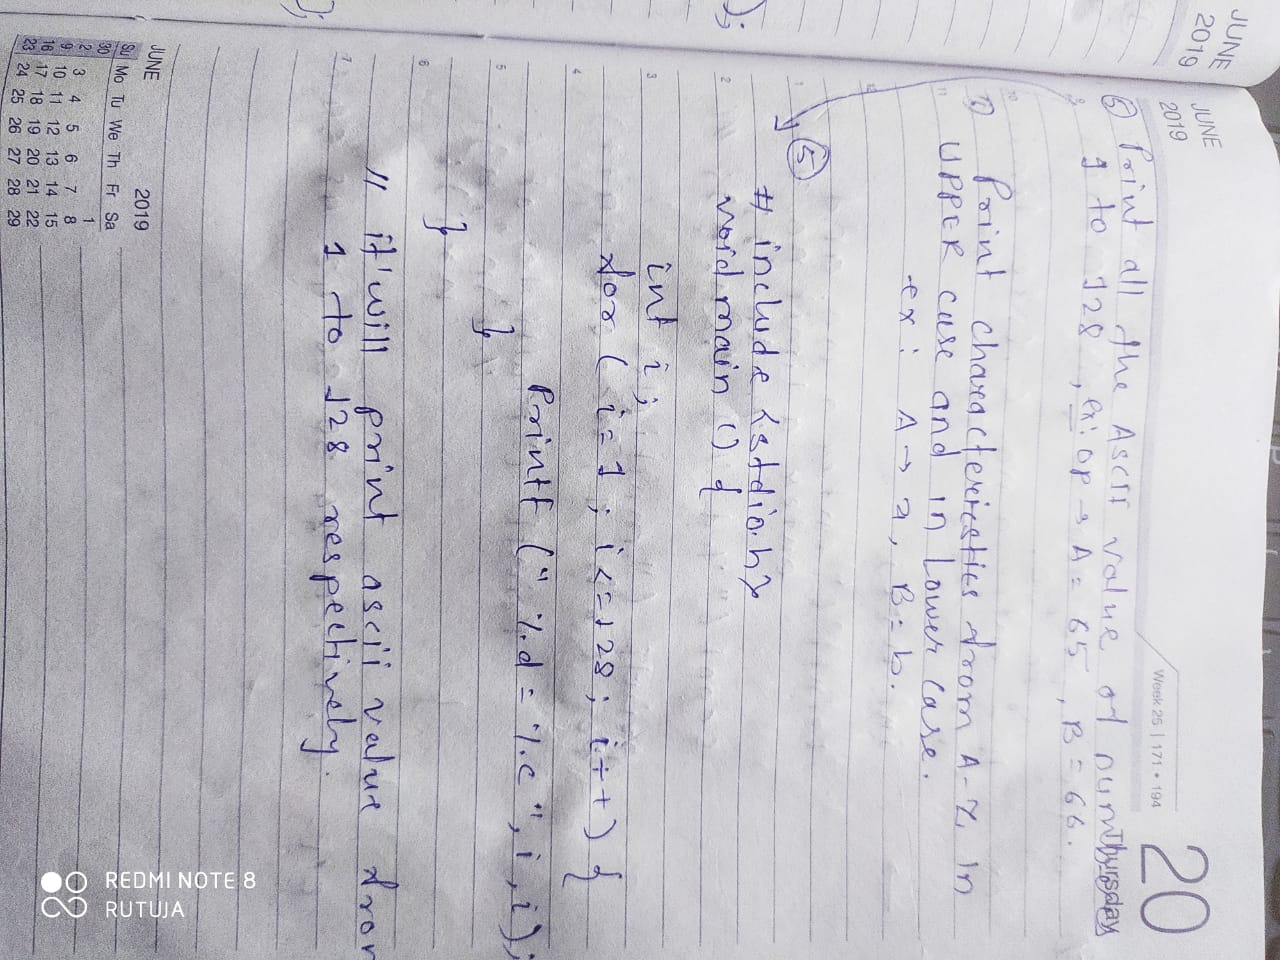 JUNE
2019
JUNE
2019
Week 25 | 171 • 194
20
Thursday
⑥ Print all the Ascii value of num
1 to 128, ex: op → A = 65, B = 66.
Print characteristics from A-Z, in
UPPER case and in Lower case.
ex: A → a, B = b.
⑤
# include <stdio.h>
void main () {
int i;
for ( i = 1 ; i <= 128 ; i++ ) {
Printf (" %d = %c", i, i);
}
}
// it'will print ascii value from
1 to 128 respectively.
JUNE 2019
Su Mo Tu We Th Fr Sa
30 1
2 3 4 5 6 7 8
9 10 11 12 13 14 15
16 17 18 19 20 21 22
23 24 25 26 27 28 29
9
10
11
12
1
2
3
4
5
6
7
REDMI NOTE 8
RUTUJA